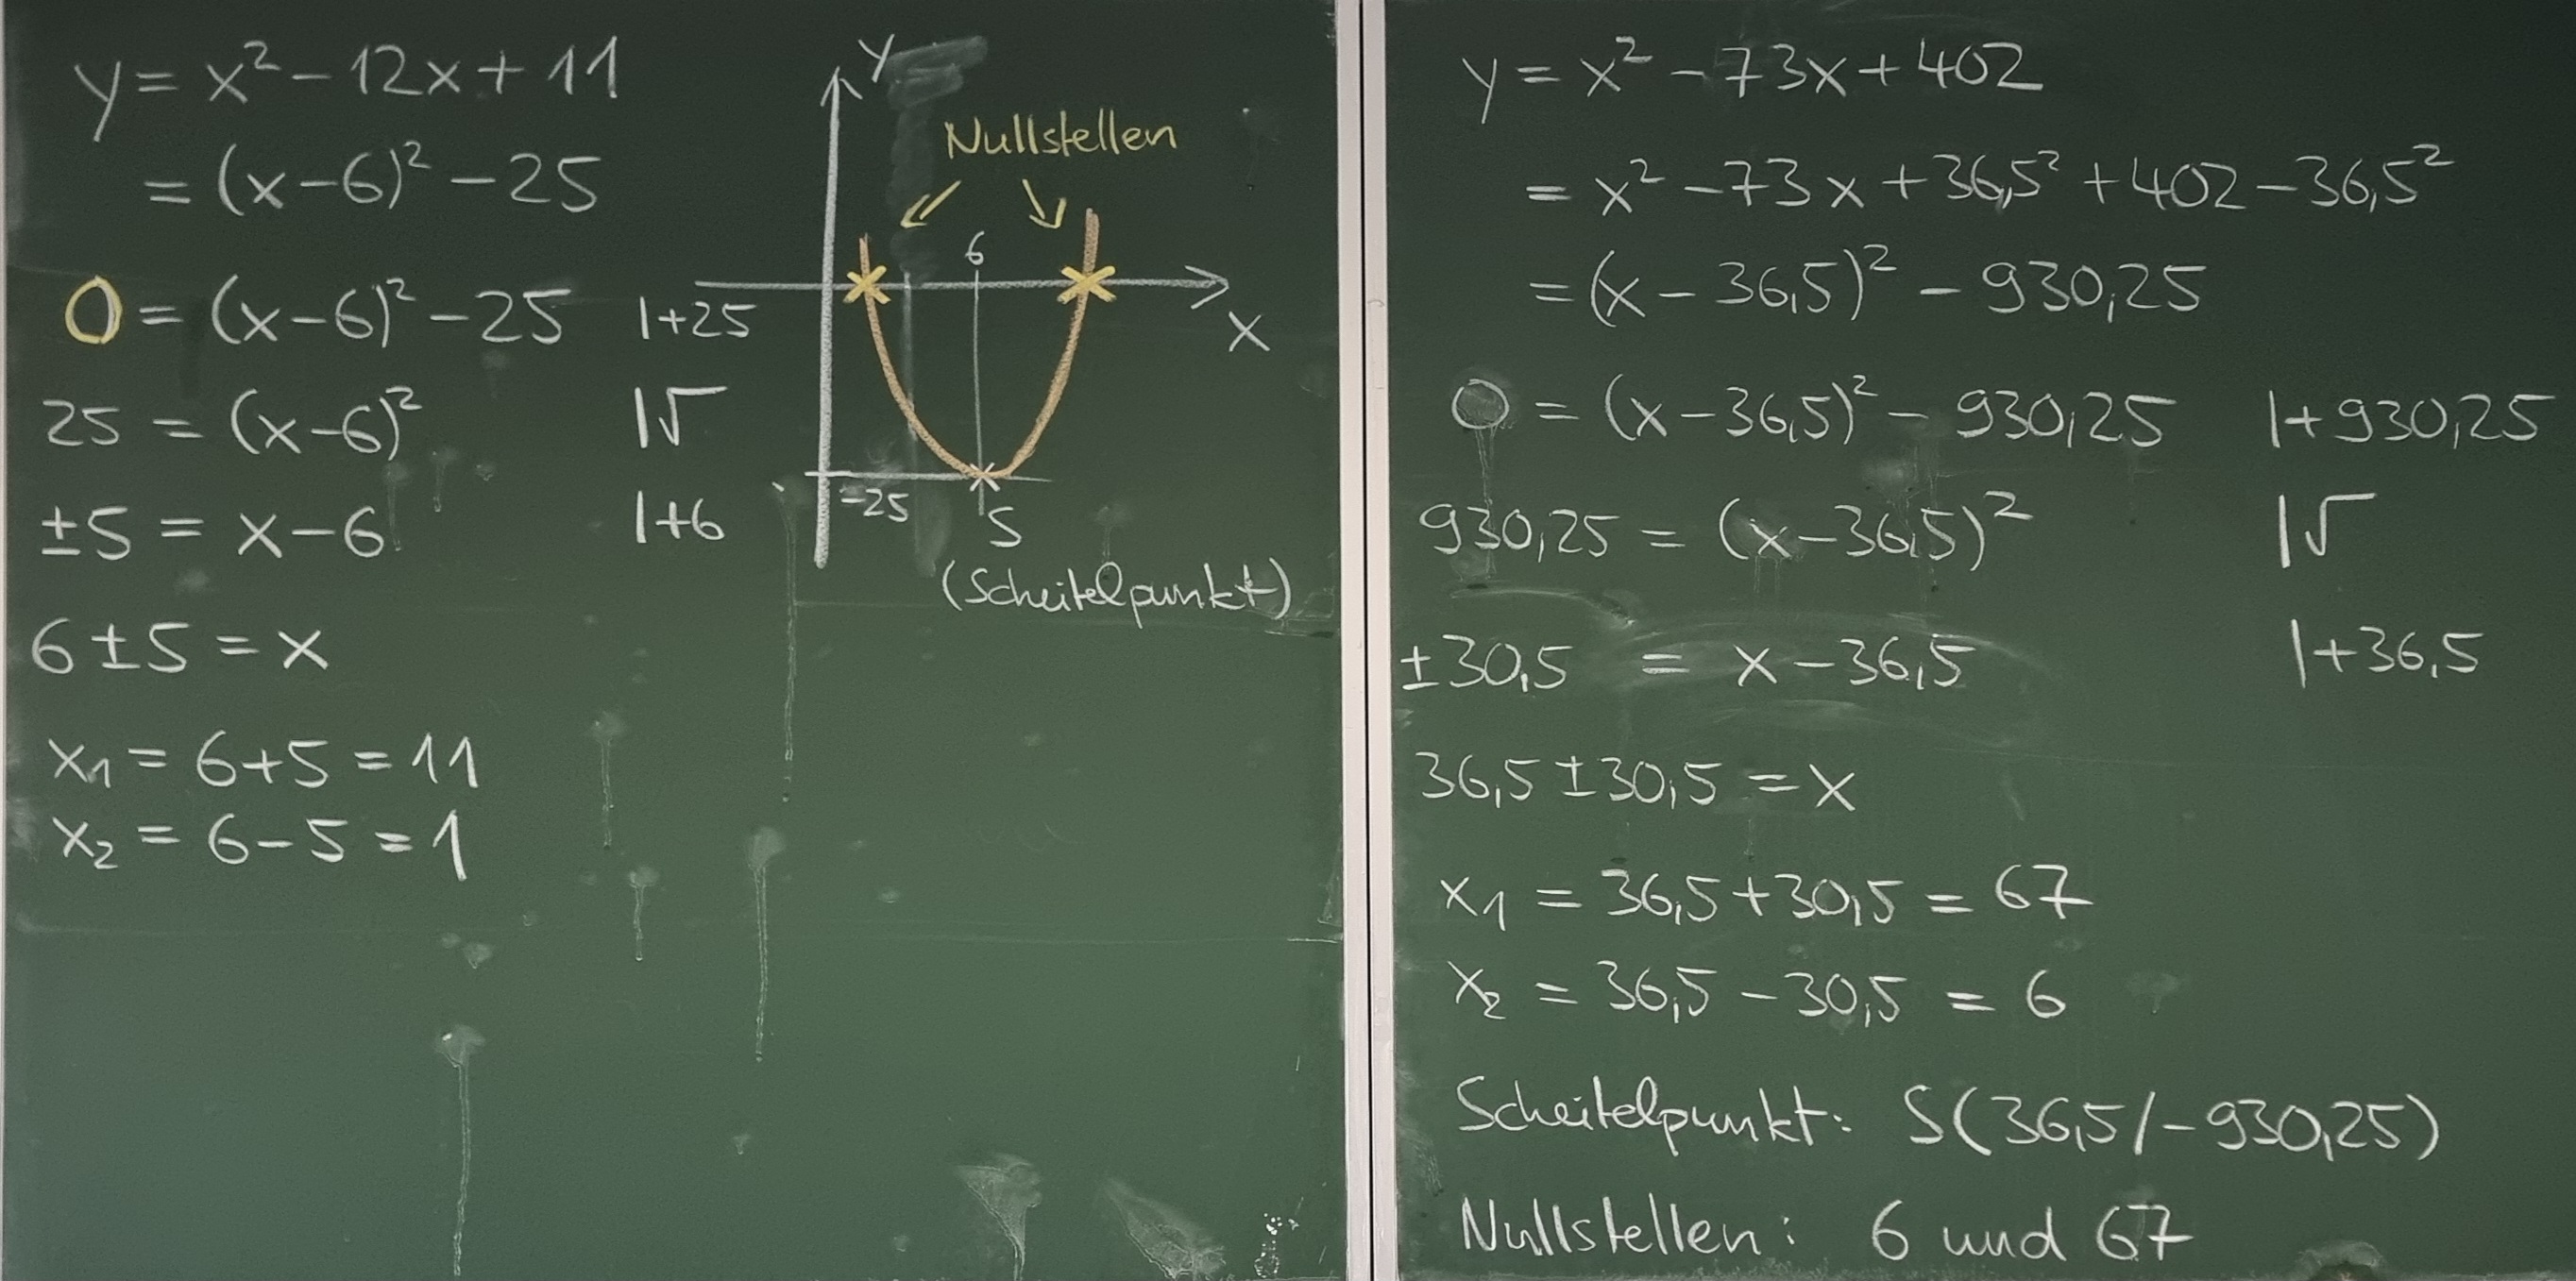 y = x² - 12x + 11
= (x-6)² - 25
0 = (x-6)² - 25 |+25
25 = (x-6)² |√
±5 = x-6 |+6
6±5 = x
x₁ = 6+5 = 11
x₂ = 6-5 = 1
y
Nullstellen
6
x
-25
S
(Scheitelpunkt)
y = x² - 73x + 402
= x² - 73x + 36,5² + 402 - 36,5²
= (x - 36,5)² - 930,25
0 = (x-36,5)² - 930,25 |+930,25
930,25 = (x-36,5)² |√
±30,5 = x - 36,5 |+36,5
36,5 ± 30,5 = x
x₁ = 36,5 + 30,5 = 67
x₂ = 36,5 - 30,5 = 6
Scheitelpunkt: S(36,5/-930,25)
Nullstellen: 6 und 67